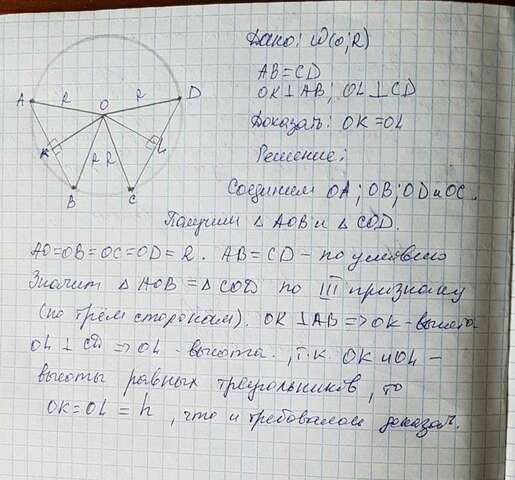 Дано: W(O;R)
AB=CD
OK⊥AB, OL⊥CD
Доказать: OK=OL
Решение:
Соединим OA; OB; OD и OC.
Получим △ AOB и △ COD.
AO=OB=OC=OD=R. AB=CD – по условию
Значит △ AOB = △ COD по III признаку
(по трем сторонам). OK ⊥ AB => OK – высота
OL ⊥ CD => OL – высота. , т.к. OK и OL –
высоты равных треугольников, то
OK=OL = h , что и требовалось доказать.
A
R
O
R
D
K
L
R
R
B
C